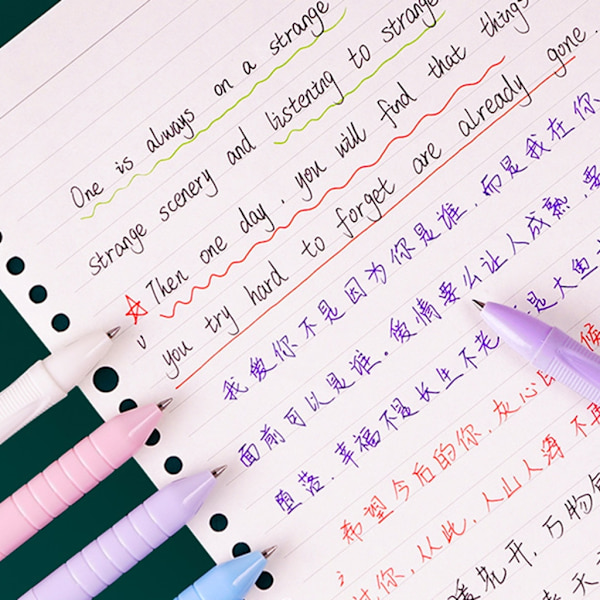 One is always on a strange
strange scenery and listening to strange
Then one day, you will find that things
you try hard to forget are already gone.
我爱你不是因为你是谁,而是我在你
面前可以是谁。爱情要么让人成熟,要
堕落.幸福不是长生不老,是大鱼
希望今后的你.灰心
你,从此,人山人海 不再
暖花开,万物
天